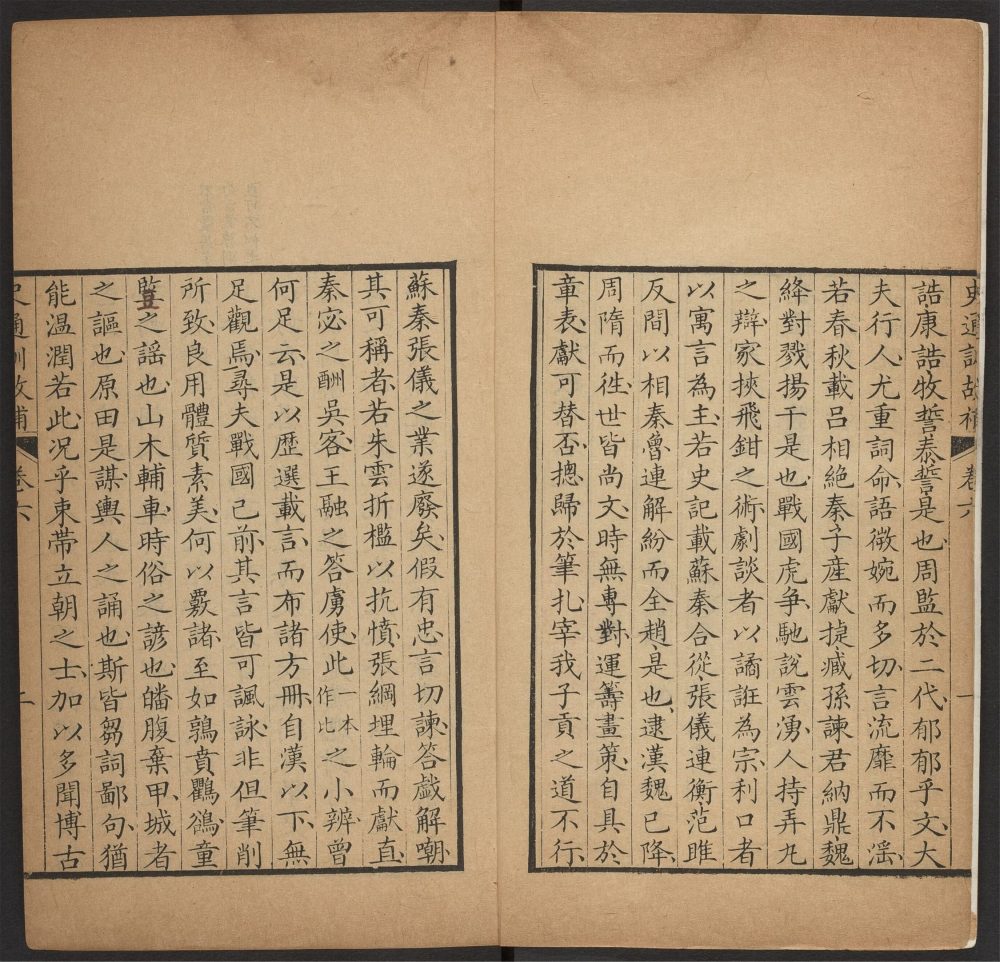 史通訓故補 卷六 一
誥康誥牧誓泰誓是也周監於二代郁郁乎文大
夫行人尤重詞命語微婉而多切言流靡而不滛
若春秋載呂相絶秦子產獻捷臧孫諫君納鼎魏
絳對戮揚干是也戰國虎爭馳說雲湧人持弄丸
之辯家挾飛鉗之術劇談者以譎誑為宗利口者
以寓言為主若史記載蘇秦合從張儀連衡范雎
反間以相秦魯連解紛而全趙是也逮漢魏已降
周隋而徃世皆尚文時無專對運籌畫策自具於
章表獻可替否摠歸於筆扎宰我子貢之道不行
蘇秦張儀之業遂廢矣假有忠言切諫答戲解嘲
其可稱者若朱雲折檻以抗憤張綱埋輪而獻直
秦宓之酬吳客王融之答虜使此一本作比之小辨曾
何足云是以歴選載言而布諸方冊自漢以下無
足觀焉尋夫戰國已前其言皆可諷詠非但筆削
所致良用體質素美何以覈諸至如鶉賁鸜鵒童
豎之謡也山木輔車時俗之諺也皤腹棄甲城者
之謳也原田是謀輿人之誦也斯皆芻詞鄙句猶
能温潤若此况乎束帶立朝之士加以多聞博古
史通訓故補 卷六 二